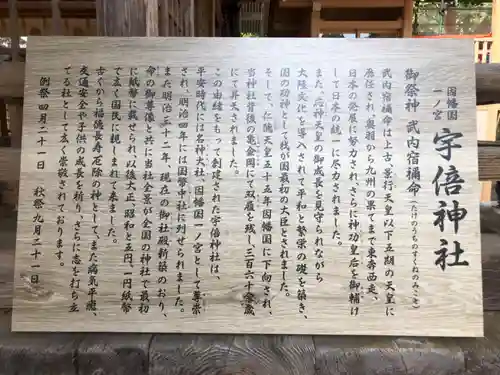 因幡國
一ノ宮
宇倍神社
御祭神 武内宿禰命(たけのうちのすくねのみこと)
武内宿禰命は上古、景行天皇以下五朝の天皇に
歴任され、奥羽から九州の果てまで東奔西走、
日本の発展に努力され、さらに神功皇后を御輔け
して日本の統一に尽力されました。
また、応神天皇の御成長を見守られながら
大陸文化を導入されて平和と繁栄の礎を築き、
国の功神として我が国最初の大臣とされました。
そして、仁徳天皇五十五年因幡国に下向され、
当神社背後の亀金岡にて双履を残し、三百六十余歳
にて昇天されました。
この由縁をもって創建された宇倍神社は、
平安時代には名神大社、因幡国一ノ宮として尊崇
され、明治四年には国幣中社に列せられました。
また明治三十二年、現在の御社殿新築のおり、
命の御尊像と共に当社全景が全国の神社で最初
に紙幣に載せられ、以後大正、昭和と五円、一円紙幣
にて広く国民に親しまれて来ました。
古くから福徳長寿厄除の神として、また病気平癒、
交通安全や子供の成長を祈り、さらに忌を打ち立
てる社として広く崇敬されております。
例祭 四月二十一日 秋祭 九月二十一日